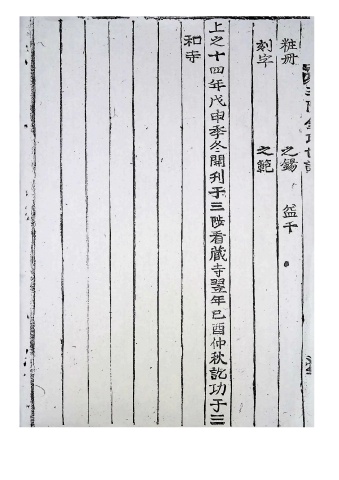 粧册 之鍚 益千
刻字 之範
上之十四年戊申季冬開刋于三陟看藏寺翌年己酉仲秋訖功于三
和寺